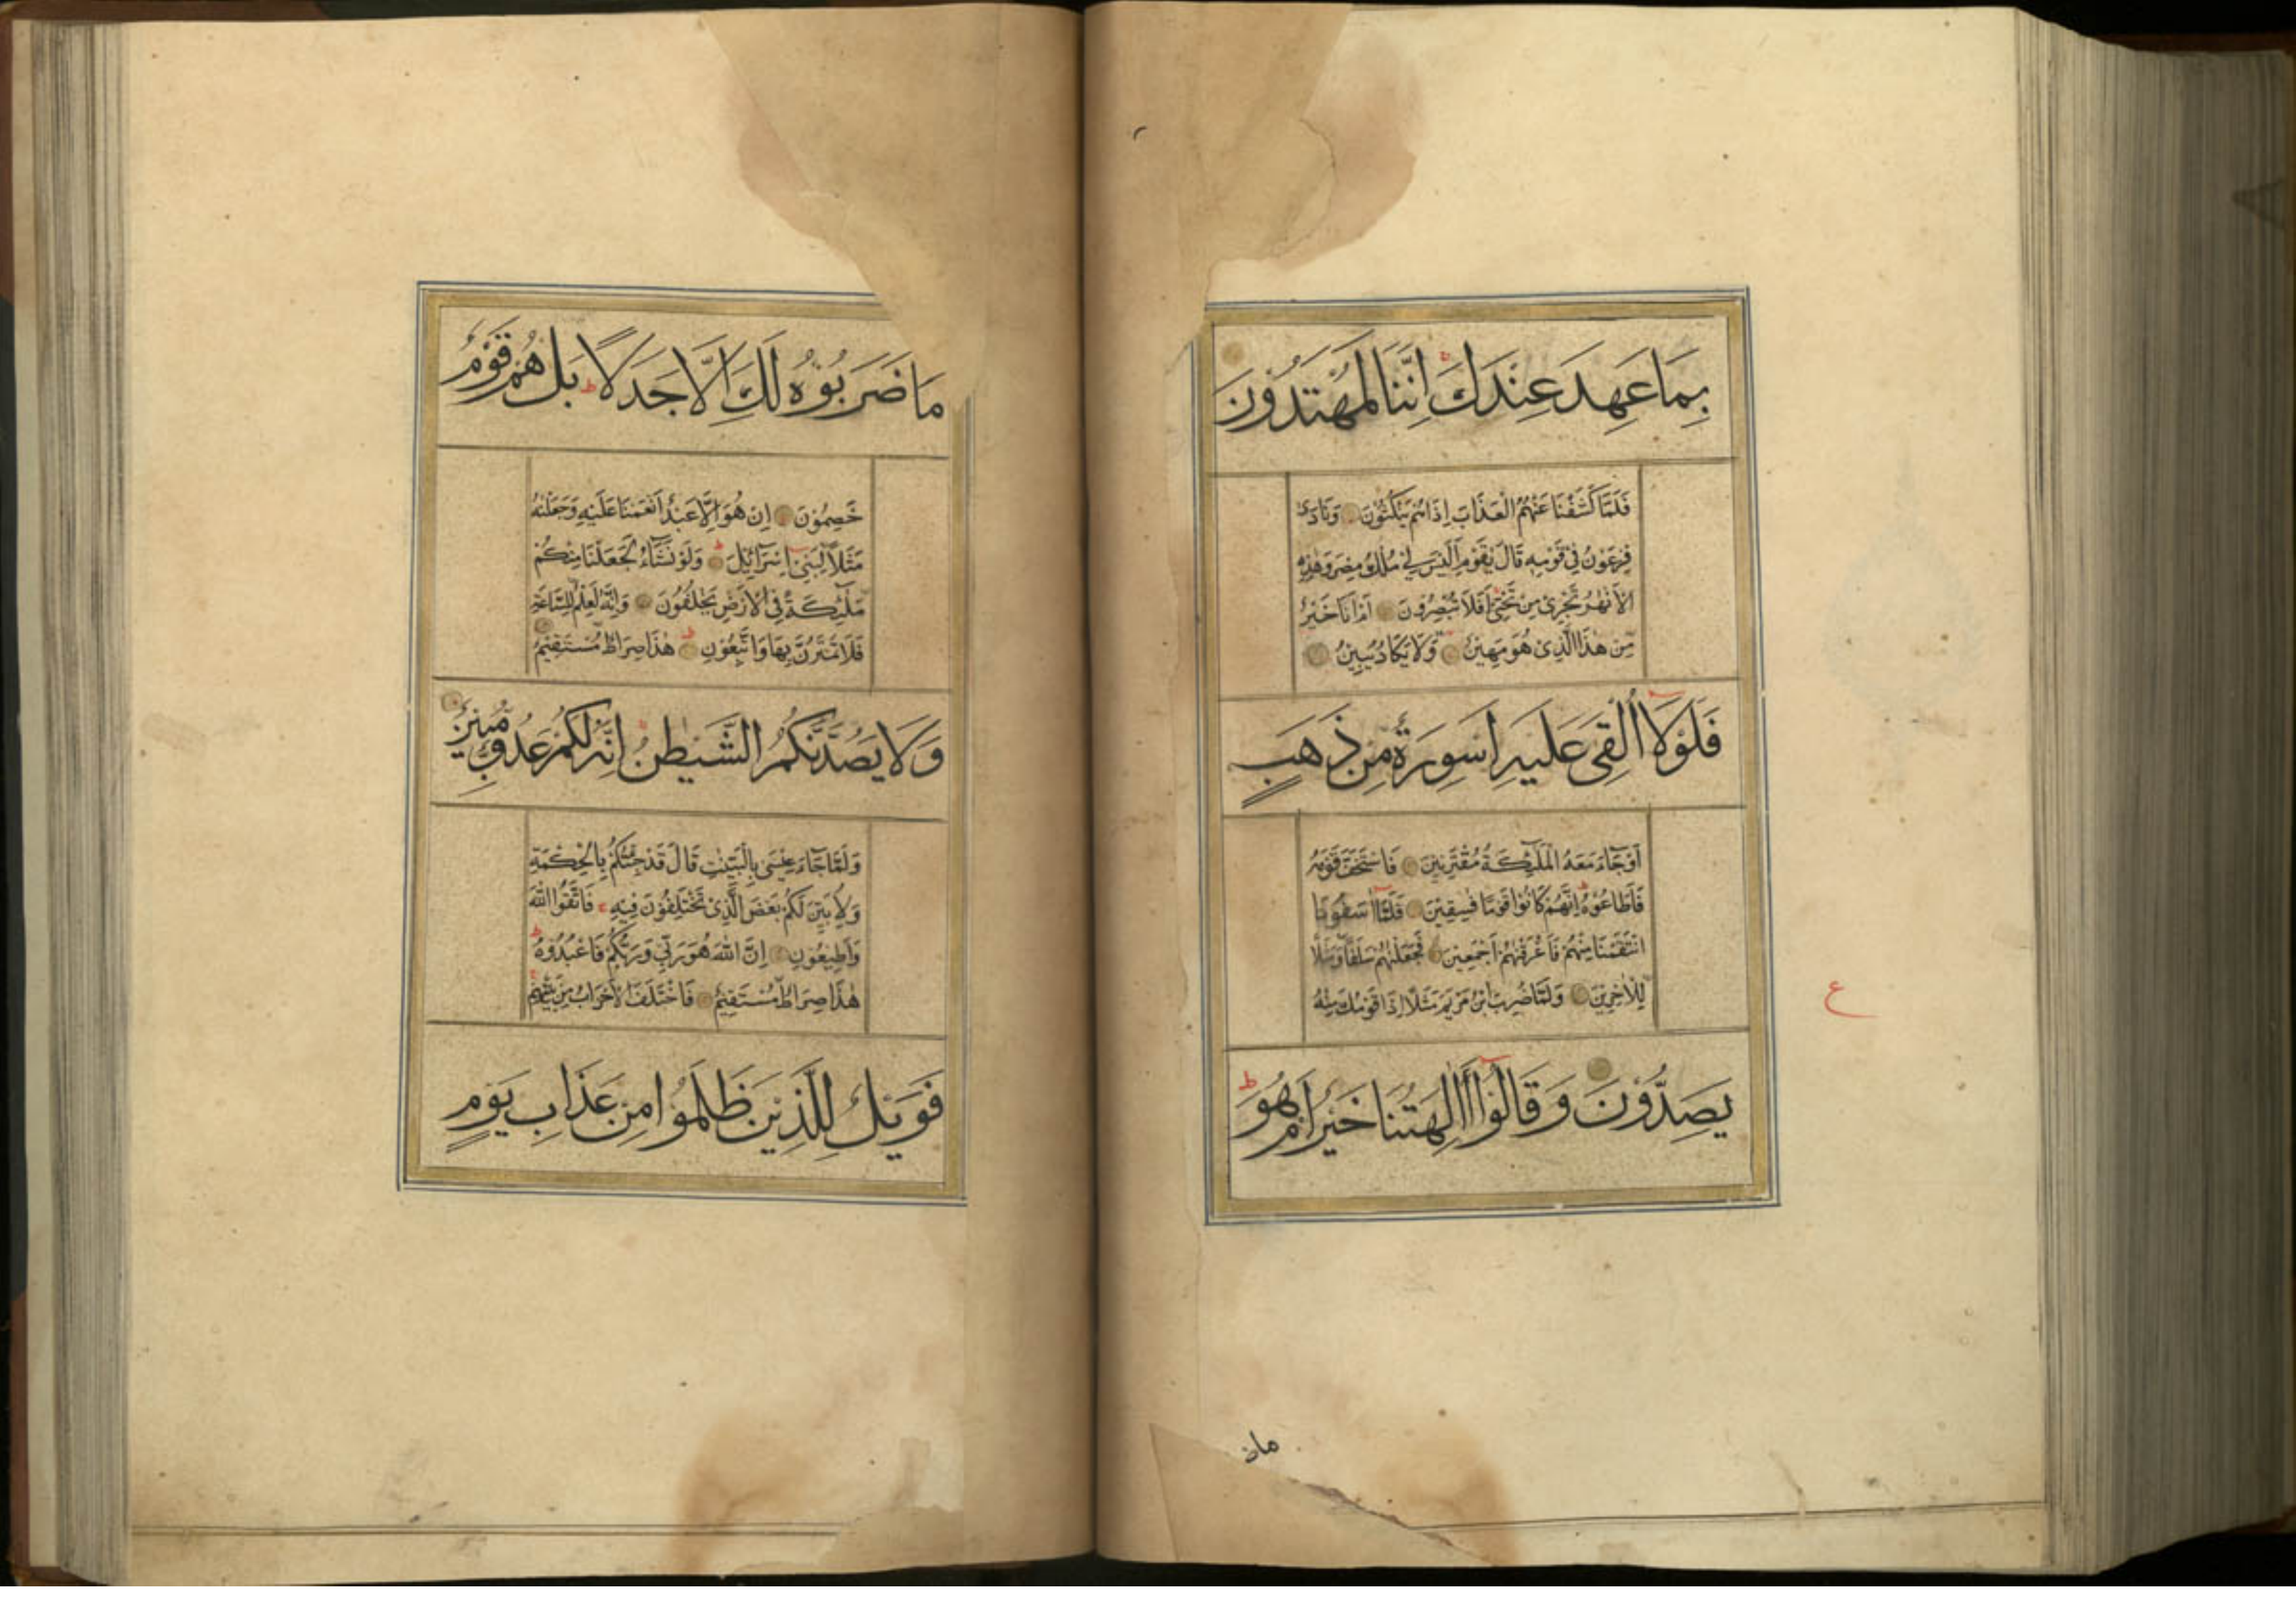 بِمَا عَهِدَ عِنْدَكَ اِنَّنَا لَمُهْتَدُوْنَ
فَلَمَّا كَشَفْنَا عَنْهُمُ الْعَذَابَ اِذَا هُمْ يَنْكُثُوْنَ وَنَادٰى
فِرْعَوْنُ فِىْ قَوْمِهٖ قَالَ يٰقَوْمِ اَلَيْسَ لِىْ مُلْكُ مِصْرَ وَهٰذِهِ
الْاَنْهٰرُ تَجْرِىْ مِنْ تَحْتِىْ اَفَلَا تُبْصِرُوْنَ اَمْ اَنَا خَيْرٌ
مِّنْ هٰذَا الَّذِىْ هُوَ مَهِيْنٌ وَّلَا يَكَادُ يُبِيْنُ
فَلَوْلَا اُلْقِىَ عَلَيْهِ اَسْوِرَةٌ مِنْ ذَهَبٍ
اَوْ جَاءَ مَعَهُ الْمَلٰٓئِكَةُ مُقْتَرِنِيْنَ فَاسْتَخَفَّ قَوْمَهٗ
فَاَطَاعُوْهُ اِنَّهُمْ كَانُوْا قَوْمًا فٰسِقِيْنَ فَلَمَّا اٰسَفُوْنَا
انْتَقَمْنَا مِنْهُمْ فَاَغْرَقْنٰهُمْ اَجْمَعِيْنَ فَجَعَلْنٰهُمْ سَلَفًا وَّمَثَلًا
لِّلْاٰخِرِيْنَ وَلَمَّا ضُرِبَ ابْنُ مَرْيَمَ مَثَلًا اِذَا قَوْمُكَ مِنْهُ
ع
يَصِدُّوْنَ وَقَالُوْا ءَاٰلِهَتُنَا خَيْرٌ اَمْ هُوَ ط
مَا ضَرَبُوْهُ لَكَ اِلَّا جَدَلًا ط بَلْ هُمْ قَوْمٌ
خَصِمُوْنَ اِنْ هُوَ اِلَّا عَبْدٌ اَنْعَمْنَا عَلَيْهِ وَجَعَلْنٰهُ
مَثَلًا لِّبَنِىْٓ اِسْرَآئِيْلَ ط وَلَوْ نَشَآءُ لَجَعَلْنَا مِنْكُمْ
مَلٰٓئِكَةً فِى الْاَرْضِ يَخْلُفُوْنَ وَاِنَّهٗ لَعِلْمٌ لِّلسَّاعَةِ
فَلَا تَمْتَرُنَّ بِهَا وَاتَّبِعُوْنِ ط هٰذَا صِرَاطٌ مُّسْتَقِيْمٌ
وَلَا يَصُدَّنَّكُمُ الشَّيْطٰنُ اِنَّهٗ لَكُمْ عَدُوٌّ مُّبِيْنٌ
وَلَمَّا جَآءَ عِيْسٰى بِالْبَيِّنٰتِ قَالَ قَدْ جِئْتُكُمْ بِالْحِكْمَةِ
وَلِاُبَيِّنَ لَكُمْ بَعْضَ الَّذِىْ تَخْتَلِفُوْنَ فِيْهِ فَاتَّقُوا اللهَ
وَاَطِيْعُوْنِ اِنَّ اللهَ هُوَ رَبِّىْ وَرَبُّكُمْ فَاعْبُدُوْهُ ط
هٰذَا صِرَاطٌ مُّسْتَقِيْمٌ فَاخْتَلَفَ الْاَحْزَابُ مِنْ بَيْنِهِمْ
فَوَيْلٌ لِلَّذِيْنَ ظَلَمُوْا مِنْ عَذَابِ يَوْمٍ